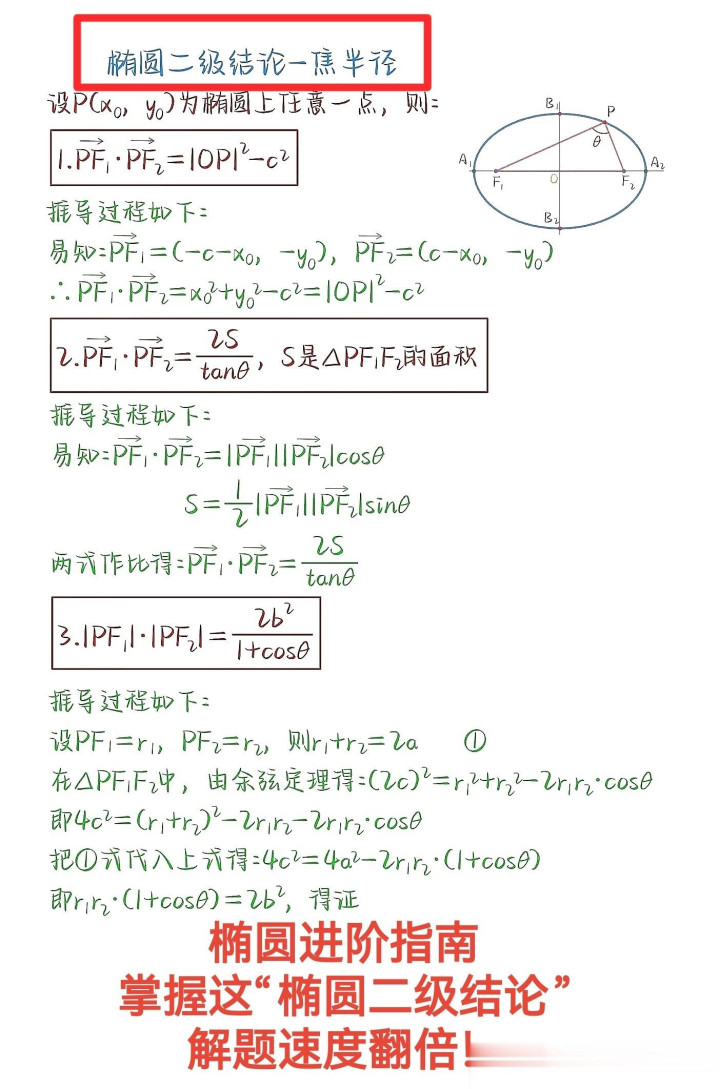 椭圆二级结论—焦半径
设P(x₀, y₀)为椭圆上任意一点，则:
1.PF₁·PF₂=|OP|²-c²
B₁
P
θ
A₁
A₂
F₁
O
F₂
B₂
推导过程如下:
易知:PF₁=(-c-x₀, -y₀), PF₂=(c-x₀, -y₀)
∴PF₁·PF₂=x₀²+y₀²-c²=|OP|²-c²
2.PF₁·PF₂=2S/tanθ, S是△PF₁F₂的面积
推导过程如下:
易知:PF₁·PF₂=|PF₁||PF₂|cosθ
S=1/2|PF₁||PF₂|sinθ
两式作比得:PF₁·PF₂=2S/tanθ
3.|PF₁|·|PF₂|=2b²/1+cosθ
推导过程如下:
设PF₁=r₁, PF₂=r₂, 则r₁+r₂=2a ①
在△PF₁F₂中，由余弦定理得:(2c)²=r₁²+r₂²-2r₁r₂·cosθ
即4c²=(r₁+r₂)²-2r₁r₂-2r₁r₂·cosθ
把①式代入上式得:4c²=4a²-2r₁r₂·(1+cosθ)
即r₁r₂·(1+cosθ)=2b², 得证
椭圆进阶指南
掌握这“椭圆二级结论”
解题速度翻倍!